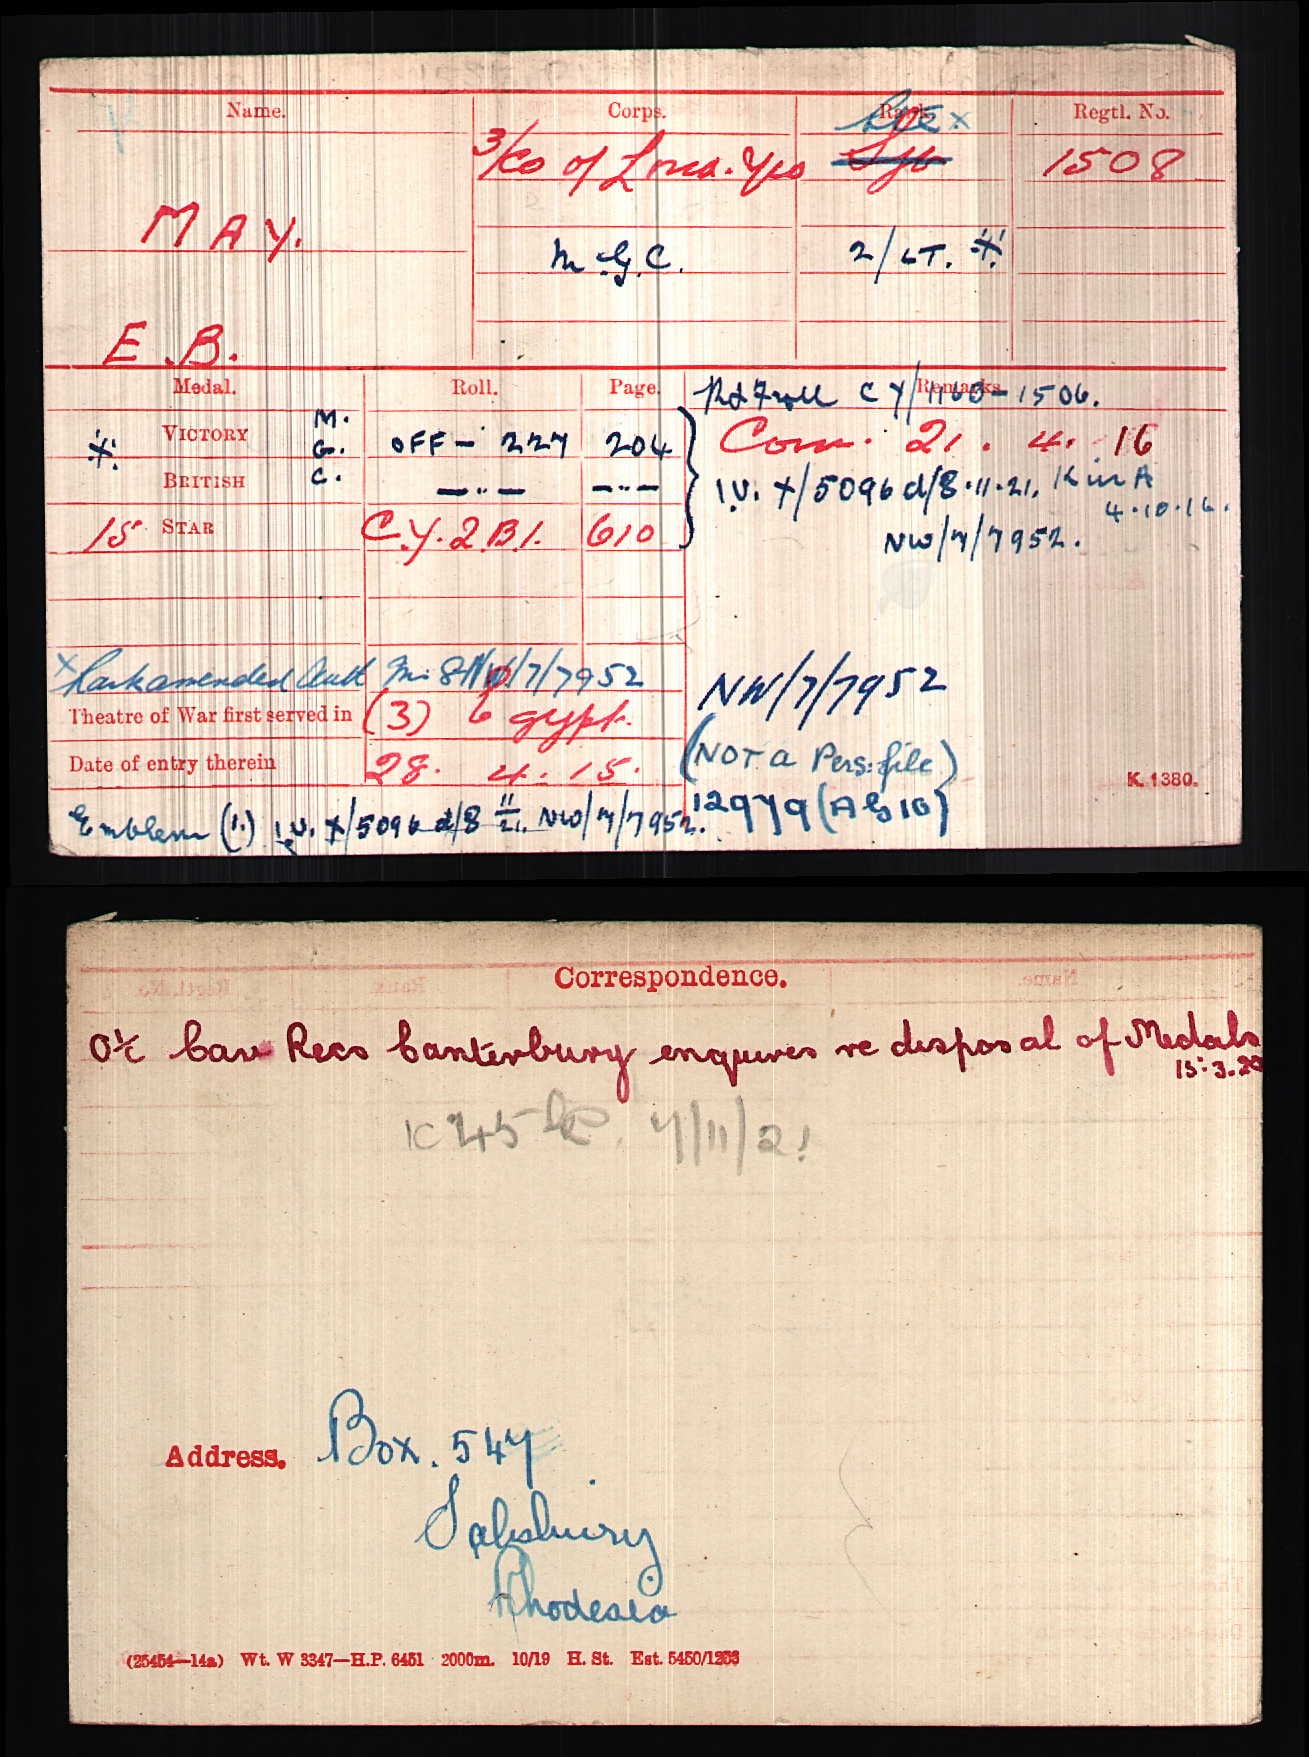 Name. Corps. Rank. Regtl. No.
3/Co of Lond. Yeo Sjt 1508
MAY.
M.G.C. 2/LT. *
E.B.
Medal. Roll. Page. Remarks.
R & F roll CY/1160-1506.
* VICTORY M. G. C. OFF - 227 204 Com. 21. 4. 16
BRITISH —"— —"— I.V. X/5096 d/8.11.21. K in A 4.10.16.
15 STAR C.Y.2.B1. 610
NW/7/7952.
x Rank amended Auth NW/7/7952
NW/7/7952
Theatre of War first served in (3) Egypt.
(NOT a Pers: file)
Date of entry therein 28. 4. 15.
K. 1380.
12979 (AG10)
Emblem (1.) I.V. X/5096 d/8 11/21. NW/7/7952.
Correspondence.
O i/c Cav Recs Canterbury enquires re disposal of Medals
15.3.20
7/11/21
Address. Box. 547
Salisbury
Rhodesia
(25454—14a) Wt. W 3347—H.P. 6451 2000m. 10/19 H. St. Est. 5450/1253